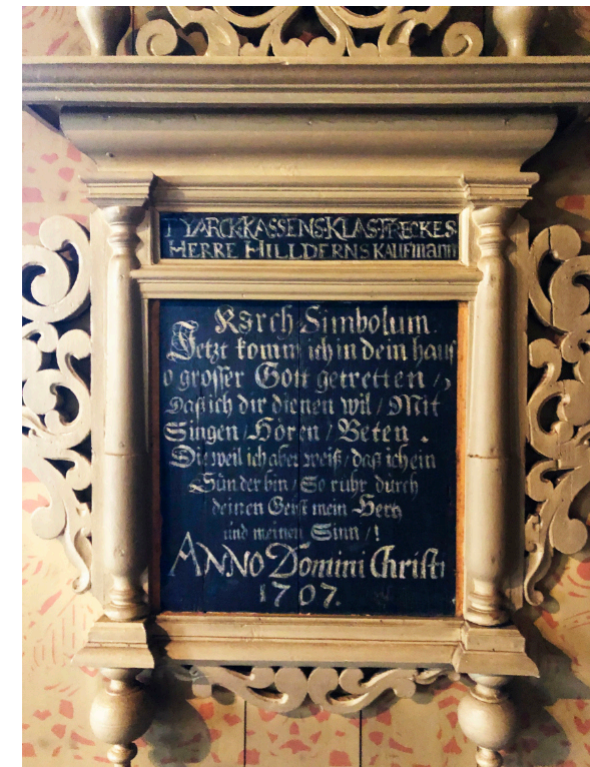 HERRE HILLDERNS KAUFmann
Kerch Simbolum
Jetzt komm ich in dein hauſ
o groſſer Gott getretten /
Daß ich dir dienen wil / Mit
Singen / Hören / Beten .
Die weil ich aber weiß / daß ich ein
Sünder bin / So ruhr durch
deinen Geiſt mein Hertz
und meinen Sinn / !
ANNO Domini Chriſti
1707.